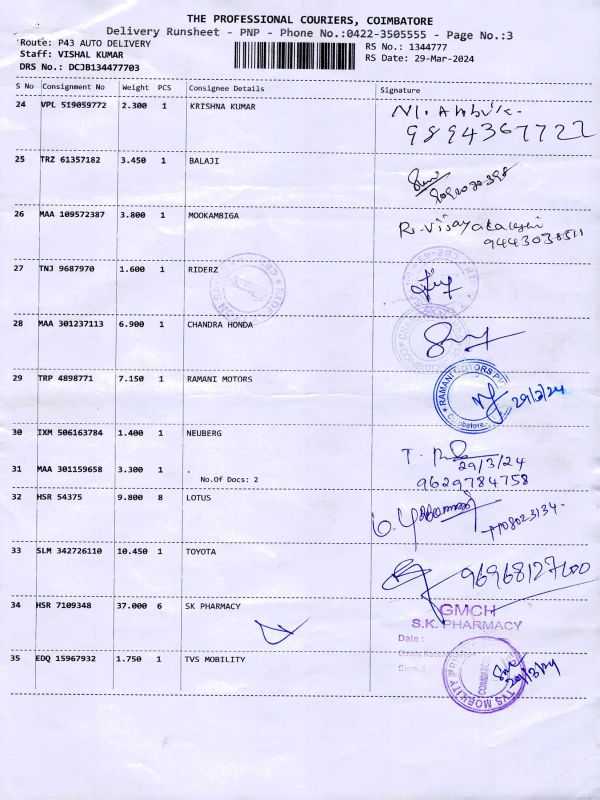 THE PROFESSIONAL COURIERS, COIMBATORE
Delivery Runsheet - PNP - Phone No.:0422-3505555 - Page No.:3
Route: P43 AUTO DELIVERY
Staff: VISHAL KUMAR
DRS No.: DCJB134477703
RS No.: 1344777
RS Date: 29-Mar-2024
S No Consignment No Weight PCS Consignee Details Signature
24 VPL 519059772 2.300 1 KRISHNA KUMAR
9894367722
25 TRZ 61357182 3.450 1 BALAJI
26 MAA 109572387 3.800 1 MOOKAMBIGA
9443038511
27 TNJ 9687970 1.600 1 RIDERZ
28 MAA 301237113 6.900 1 CHANDRA HONDA
29 TRP 4898771 7.150 1 RAMANI MOTORS
RAMANI MOTORS
Coimbatore
29/3/24
30 IXM 506163784 1.400 1 NEUBERG
T.
29/3/24
31 MAA 301159658 3.300 1 .
No.Of Docs: 2
9629784758
32 HSR 54375 9.800 8 LOTUS
33 SLM 342726110 10.450 1 TOYOTA
96968127600
34 HSR 7109348 37.000 6 SK PHARMACY
GMCH
S.K. PHARMACY
Date :
Sign. :
35 EDQ 15967932 1.750 1 TVS MOBILITY
TVS MOBILITY
29/3/24